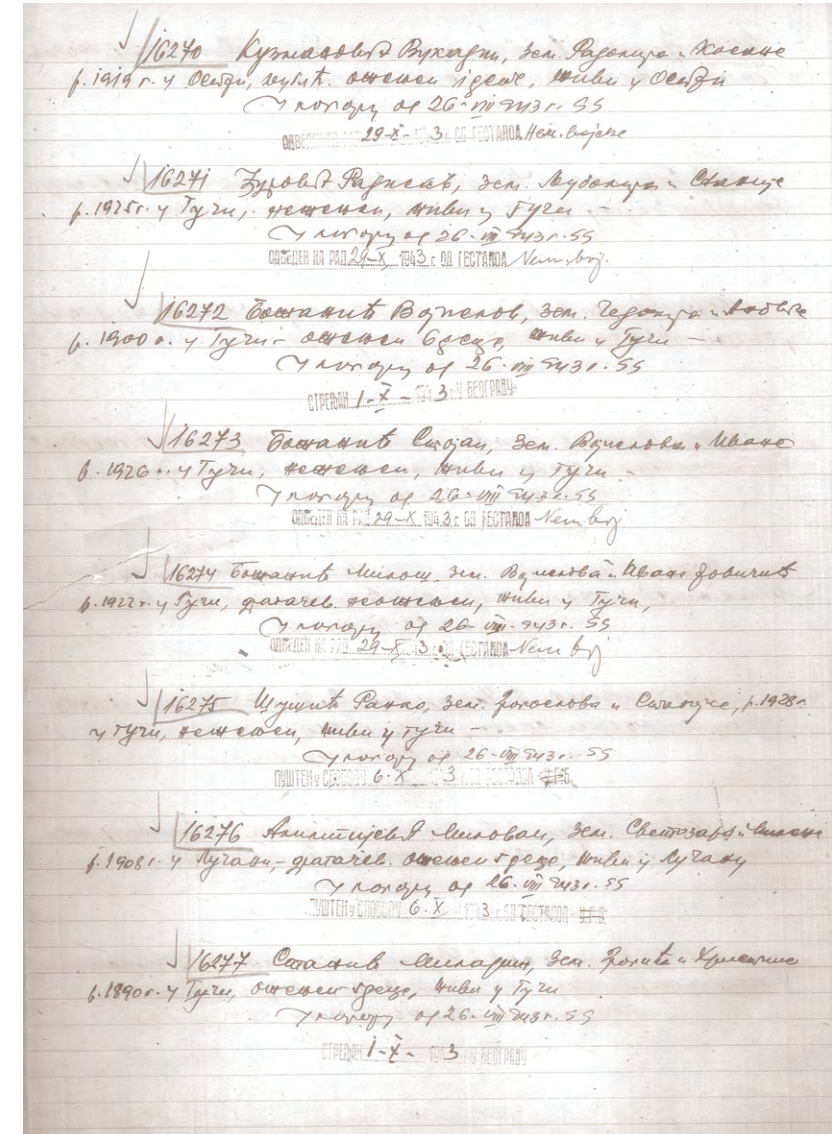 16270 Кузмановић Вукадин, зем. Радомира и Косане
р. 1919 г. у ожењен 1 дете, живи у
У логору од 26-VIII 943 г. SS
ОДВЕДЕН НА РАД 29-X-1943 г. ОД ГЕСТАПОА Нем. војске
16271 зем. Љубомира и Станице
р. 1925 г. у Гучи, нежењен, живи у Гучи -
У логору од 26-VIII 943 г. SS
ОДВЕДЕН НА РАД 29-X 1943 г. ОД ГЕСТАПОА Nem. voj.
16272 Божанић Војислав, зем. Чедомира и
р. 1900 г. у Гучи - ожењен 6 деце, живи у Гучи -
У логору од 26-VIII 943 г. SS
СТРЕЉАН 1-X-1943 У БЕОГРАДУ
16273 Божанић Стојан, зем. Војислава и Иване
р. 1926 г. у Гучи, нежењен, живи у Гучи -
У логору од 26-VIII 943 г. SS
ОДВЕДЕН НА РАД 29-X 1943 г. ОД ГЕСТАПОА Nem. voj
16274 Божанић Милош, зем. Војислава и Иване
р. 1922 г. у Гучи, драгачев. нежењен, живи у Гучи,
У логору од 26-VIII-943 г. SS
ОДВЕДЕН НА РАД 29-X 1943 г. ОД ГЕСТАПОА Nem voj
16275 Шушић Ранко, зем. и Станојке, р. 1928 г
у Гучи, нежењен, живи у Гучи -
У логору од 26-VIII 943 г. SS
ПУШТЕН у СЛОБОДУ 6-X 1943 г. ОД ГЕСТАПОА - У.Г.Б.
16276 Милован, зем. Светозара и
р. 1908 г. у Лучани, - драгачев. ожењен деце, живи у Лучану
У логору од 26-VIII 943 г. SS
ПУШТЕН у СЛОБОДУ 6-X 1943 г. ОД ГЕСТАПОА - У.Г.Б.
16277 Миладин, зем.
р. 1890 г. у Гучи, ожењен деце, живи у Гучи
У логору од 26-VIII 943 г. SS
СТРЕЉАН 1-X-1943 У БЕОГРАДУ